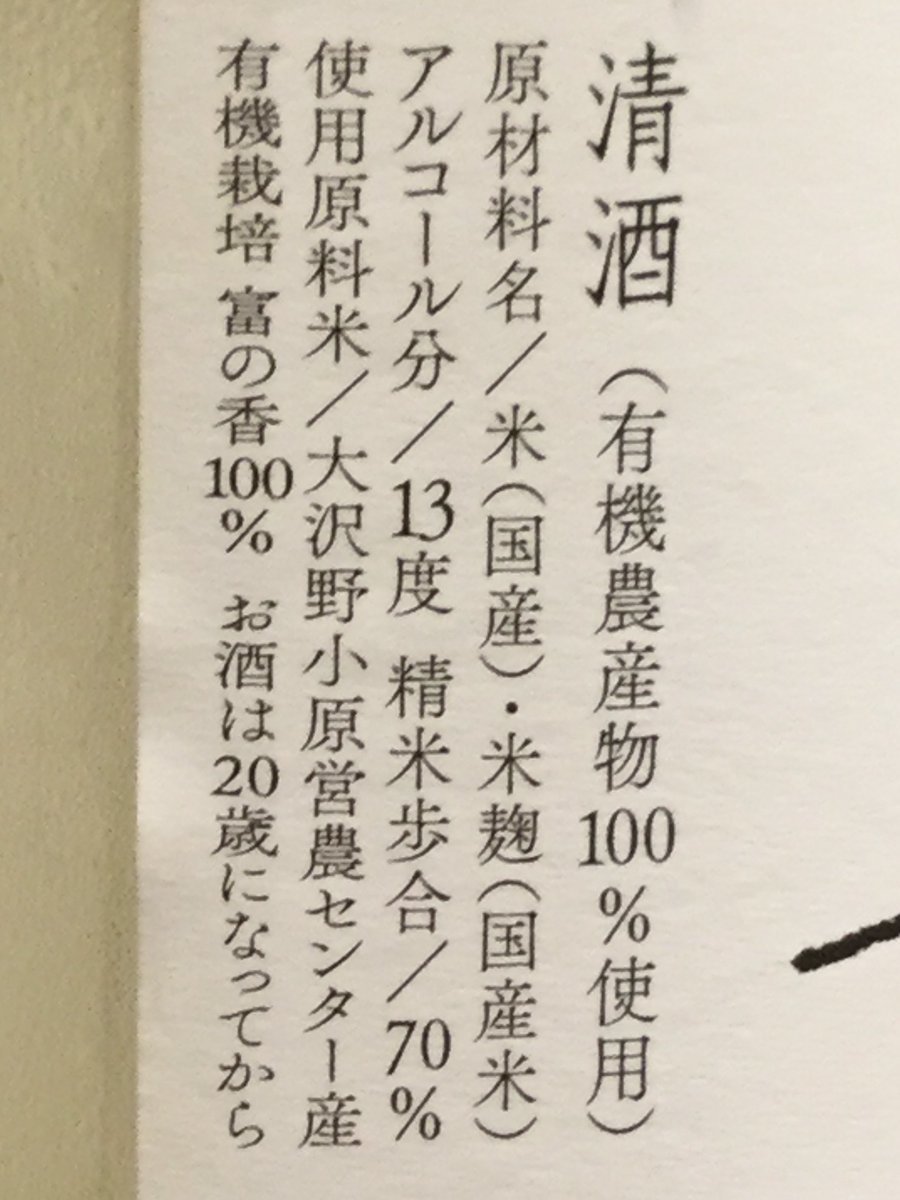 清酒（有機農産物100%使用）
原材料名／米（国産）・米麹（国産米）
アルコール分／13度 精米歩合／70%
使用原料米／大沢野小原営農センター産
有機栽培 富の香100% お酒は20歳になってから